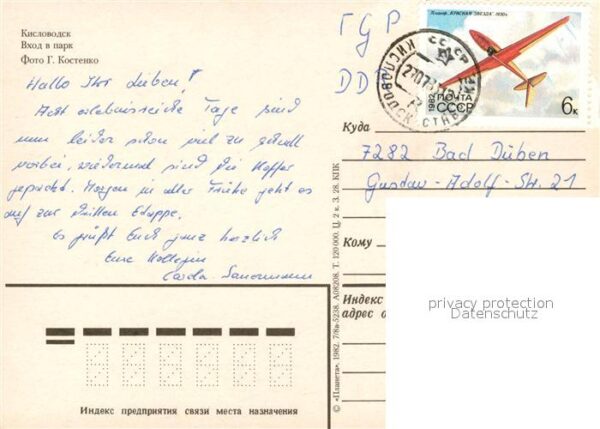 Кисловодск
Вход в парк
Фото Г. Костенко
Hallo Ihr Lieben!
Acht erlebnisreiche Tage sind
nun leider schon viel zu schnell
vorbei, wiedermal sind die Koffer
gepackt. Morgen in aller Frühe geht es
auf zur dritten Etappe.
Es grüßt Euch ganz herzlich
Eure Kollegin
Carola
ГДР
DDR
Планер „КРАСНАЯ ЗВЕЗДА" 1930г.
1982 ПОЧТА
СССР
6к
СССР
КИСЛОВОДСК
Куда
7282 Bad Düben
Gustav-Adolf-Str. 21
Кому
Индекс
адрес о
privacy protection
Datenschutz
Индекс предприятия связи места назначения
© «Планета», 1982. 7/8а-5238. А08208. Т. 120 000. Ц. 2 к. З. 28. КПК